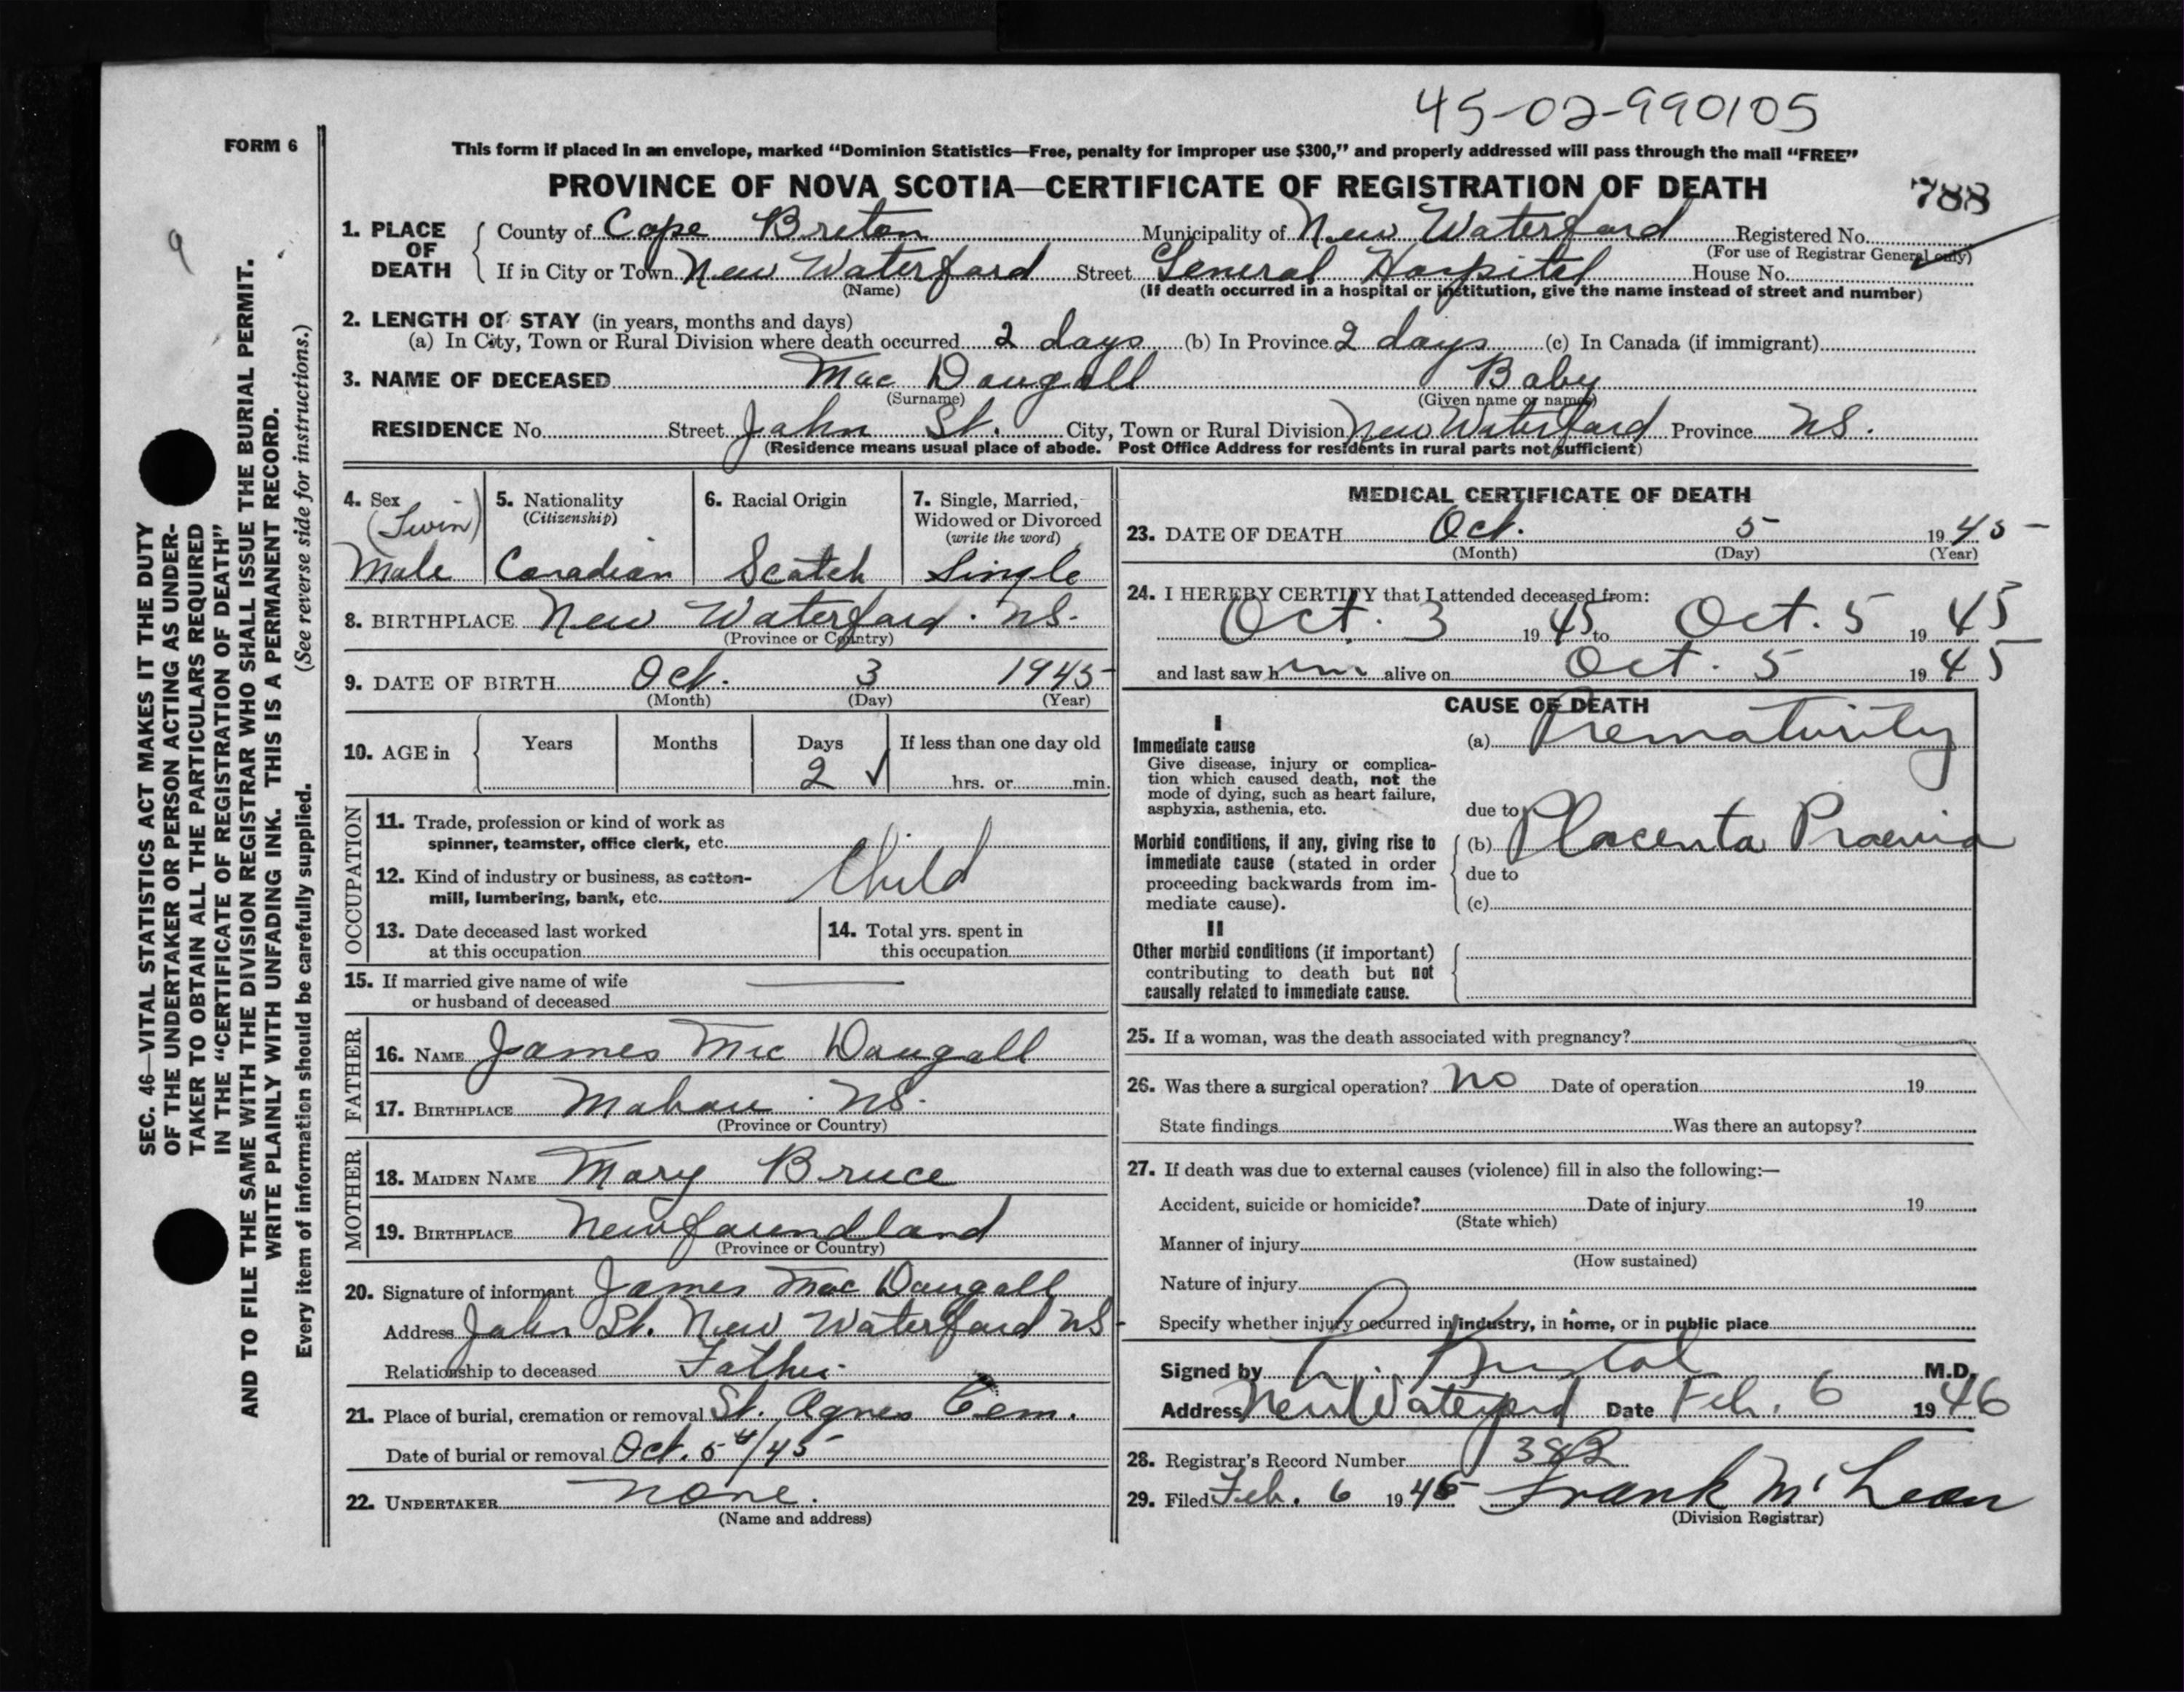 45-02-990105
FORM 6
This form if placed in an envelope, marked "Dominion Statistics—Free, penalty for improper use $300," and properly addressed will pass through the mail "FREE"
PROVINCE OF NOVA SCOTIA—CERTIFICATE OF REGISTRATION OF DEATH
788
9
1. PLACE OF DEATH
County of Cape Breton Municipality of New Waterford Registered No.
(For use of Registrar General only)
If in City or Town New Waterford Street General Hospital House No.
(Name) (If death occurred in a hospital or institution, give the name instead of street and number)
2. LENGTH OF STAY (in years, months and days)
(a) In City, Town or Rural Division where death occurred 2 days (b) In Province 2 days (c) In Canada (if immigrant)
3. NAME OF DECEASED Mac Dougall Baby
(Surname) (Given name or names)
RESIDENCE No. Street John St. City, Town or Rural Division New Waterford Province NS.
(Residence means usual place of abode. Post Office Address for residents in rural parts not sufficient)
4. Sex (Twin) Male
5. Nationality (Citizenship) Canadian
6. Racial Origin Scotch
7. Single, Married, Widowed or Divorced (write the word) Single
8. BIRTHPLACE New Waterford. NS.
(Province or Country)
9. DATE OF BIRTH Oct. 3 1945
(Month) (Day) (Year)
10. AGE in Years Months Days If less than one day old
2 ✓ hrs. or min.
OCCUPATION
11. Trade, profession or kind of work as
spinner, teamster, office clerk, etc.
12. Kind of industry or business, as cotton-
mill, lumbering, bank, etc. Child
13. Date deceased last worked
at this occupation
14. Total yrs. spent in
this occupation
15. If married give name of wife
or husband of deceased —
FATHER
16. NAME James Mc Dougall
17. BIRTHPLACE Mabou. NS.
(Province or Country)
MOTHER
18. MAIDEN NAME Mary Bruce
19. BIRTHPLACE Newfoundland
(Province or Country)
20. Signature of informant James Mac Dougall
Address John St. New Waterford NS
Relationship to deceased Father
21. Place of burial, cremation or removal St. Agnes Cem.
Date of burial or removal Oct. 5th/45
22. UNDERTAKER None.
(Name and address)
MEDICAL CERTIFICATE OF DEATH
23. DATE OF DEATH Oct. 5 1945
(Month) (Day) (Year)
24. I HEREBY CERTIFY that I attended deceased from:
Oct. 3 1945 to Oct. 5 1945
and last saw him alive on Oct. 5 1945
CAUSE OF DEATH
I
Immediate cause
Give disease, injury or complica-
tion which caused death, not the
mode of dying, such as heart failure,
asphyxia, asthenia, etc.
(a) Prematurity
due to
Morbid conditions, if any, giving rise to
immediate cause (stated in order
proceeding backwards from im-
mediate cause).
(b) Placenta Praevia
due to
(c)
II
Other morbid conditions (if important)
contributing to death but not
causally related to immediate cause.
25. If a woman, was the death associated with pregnancy?
26. Was there a surgical operation? No Date of operation 19
State findings Was there an autopsy?
27. If death was due to external causes (violence) fill in also the following:—
Accident, suicide or homicide? Date of injury 19
(State which)
Manner of injury
(How sustained)
Nature of injury
Specify whether injury occurred in industry, in home, or in public place
Signed by M.D.
Address New Waterford Date Feb. 6 1946
28. Registrar's Record Number 382
29. Filed Feb. 6 1946 Frank McLean
(Division Registrar)
SEC. 46—VITAL STATISTICS ACT MAKES IT THE DUTY
OF THE UNDERTAKER OR PERSON ACTING AS UNDER-
TAKER TO OBTAIN ALL THE PARTICULARS REQUIRED
IN THE "CERTIFICATE OF REGISTRATION OF DEATH"
AND TO FILE THE SAME WITH THE DIVISION REGISTRAR WHO SHALL ISSUE THE BURIAL PERMIT.
WRITE PLAINLY WITH UNFADING INK. THIS IS A PERMANENT RECORD.
Every item of information should be carefully supplied. (See reverse side for instructions.)